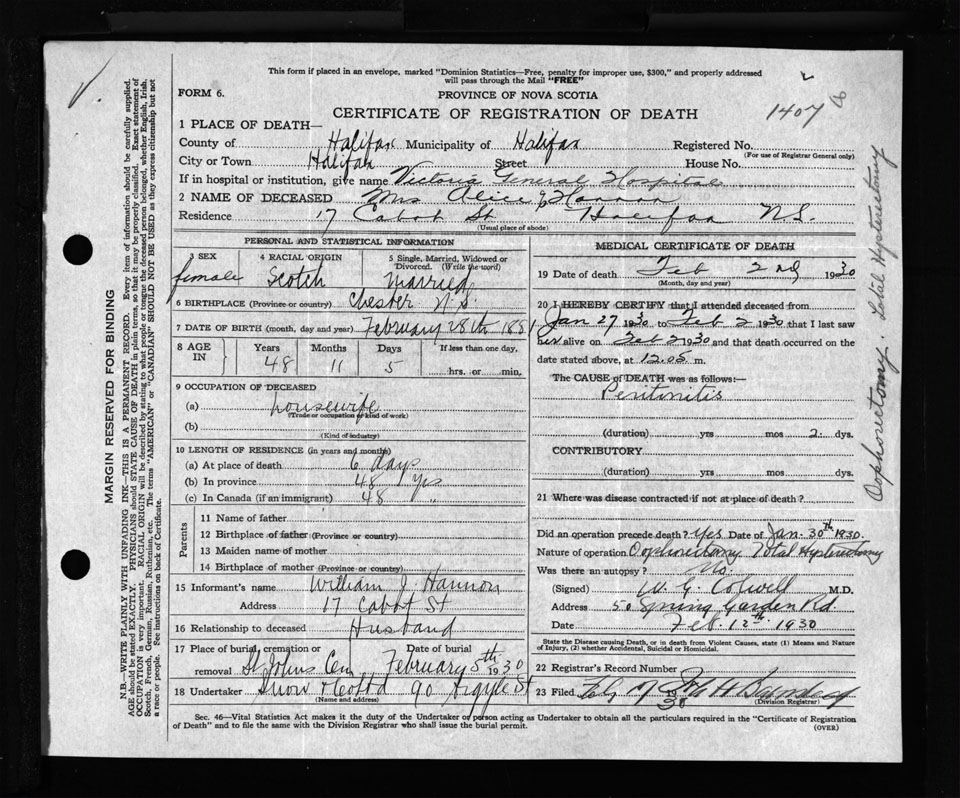 This form if placed in an envelope, marked "Dominion Statistics—Free, penalty for improper use, $300," and properly addressed
will pass through the Mail "FREE"
FORM 6.
PROVINCE OF NOVA SCOTIA
CERTIFICATE OF REGISTRATION OF DEATH
1407
1 PLACE OF DEATH—
County of Halifax Municipality of Halifax Registered No.
(For use of Registrar General only)
City or Town Halifax Street House No.
If in hospital or institution, give name Victoria General Hospital
2 NAME OF DECEASED Mrs Alice J Hannon
Residence 17 Cabot St Halifax N.S.
(Usual place of abode)
PERSONAL AND STATISTICAL INFORMATION
3 SEX 4 RACIAL ORIGIN 5 Single, Married, Widowed or Divorced. (Write the word)
female Scotch Married
6 BIRTHPLACE (Province or country) Chester N.S.
7 DATE OF BIRTH (month, day and year) February 28th 1881
8 AGE IN Years Months Days If less than one day.
48 11 5 hrs. or min.
9 OCCUPATION OF DECEASED
(a) housewife
(Trade or occupation or kind of work)
(b)
(Kind of industry)
10 LENGTH OF RESIDENCE (in years and months)
(a) At place of death 6 days
(b) In province 48 yrs
(c) In Canada (if an immigrant) 48 "
Parents
11 Name of father
12 Birthplace of father (Province or country)
13 Maiden name of mother
14 Birthplace of mother (Province or country)
15 Informant's name William J Hannon
Address 17 Cabot St
16 Relationship to deceased Husband
17 Place of burial, cremation or removal Date of burial
St Johns Cem February 5th 1930
18 Undertaker Snow & Co Ltd 90 Argyle St
(Name and address)
MEDICAL CERTIFICATE OF DEATH
19 Date of death Feb 2nd 1930
(Month, day and year)
20 I HEREBY CERTIFY that I attended deceased from
Jan 27 1930 to Feb 2 1930 that I last saw
her alive on Feb 2 1930 and that death occurred on the
date stated above, at 12.05 m.
The CAUSE of DEATH was as follows:
Peritonitis
(duration) yrs mos 2 dys.
CONTRIBUTORY
(duration) yrs mos dys.
21 Where was disease contracted if not at place of death?
Did an operation precede death? Yes Date of Jan. 30th 1930.
Nature of operation Oophorectomy Total Hysterectomy
Was there an autopsy? No.
(Signed) W. G. Colwell M.D.
Address 50 Spring Garden Rd.
Date Feb. 12th 1930
State the Disease causing Death, or in death from Violent Causes, state (1) Means and Nature
of Injury, (2) whether Accidental, Suicidal or Homicidal.
22 Registrar's Record Number
23 Filed 30
(Division Registrar)
Sec. 46—Vital Statistics Act makes it the duty of the Undertaker or person acting as Undertaker to obtain all the particulars required in the "Certificate of Registration
of Death" and to file the same with the Division Registrar who shall issue the burial permit.
(OVER)
MARGIN RESERVED FOR BINDING
N.B.—WRITE PLAINLY WITH UNFADING INK—THIS IS A PERMANENT RECORD. Every item of information should be carefully supplied.
AGE should be stated EXACTLY. PHYSICIANS should STATE CAUSE OF DEATH in plain terms, so that it may be properly classified. Exact statement of
OCCUPATION is very important. RACIAL ORIGIN will be described by stating to what people or tongue the deceased person belonged, whether English, Irish,
Scotch, French, German, Russian, Ruthenian, etc. The terms "AMERICAN" or "CANADIAN" SHOULD NOT BE USED as they express citizenship but not
a race or people. See instructions on back of Certificate.
Oophorectomy. Total Hysterectomy